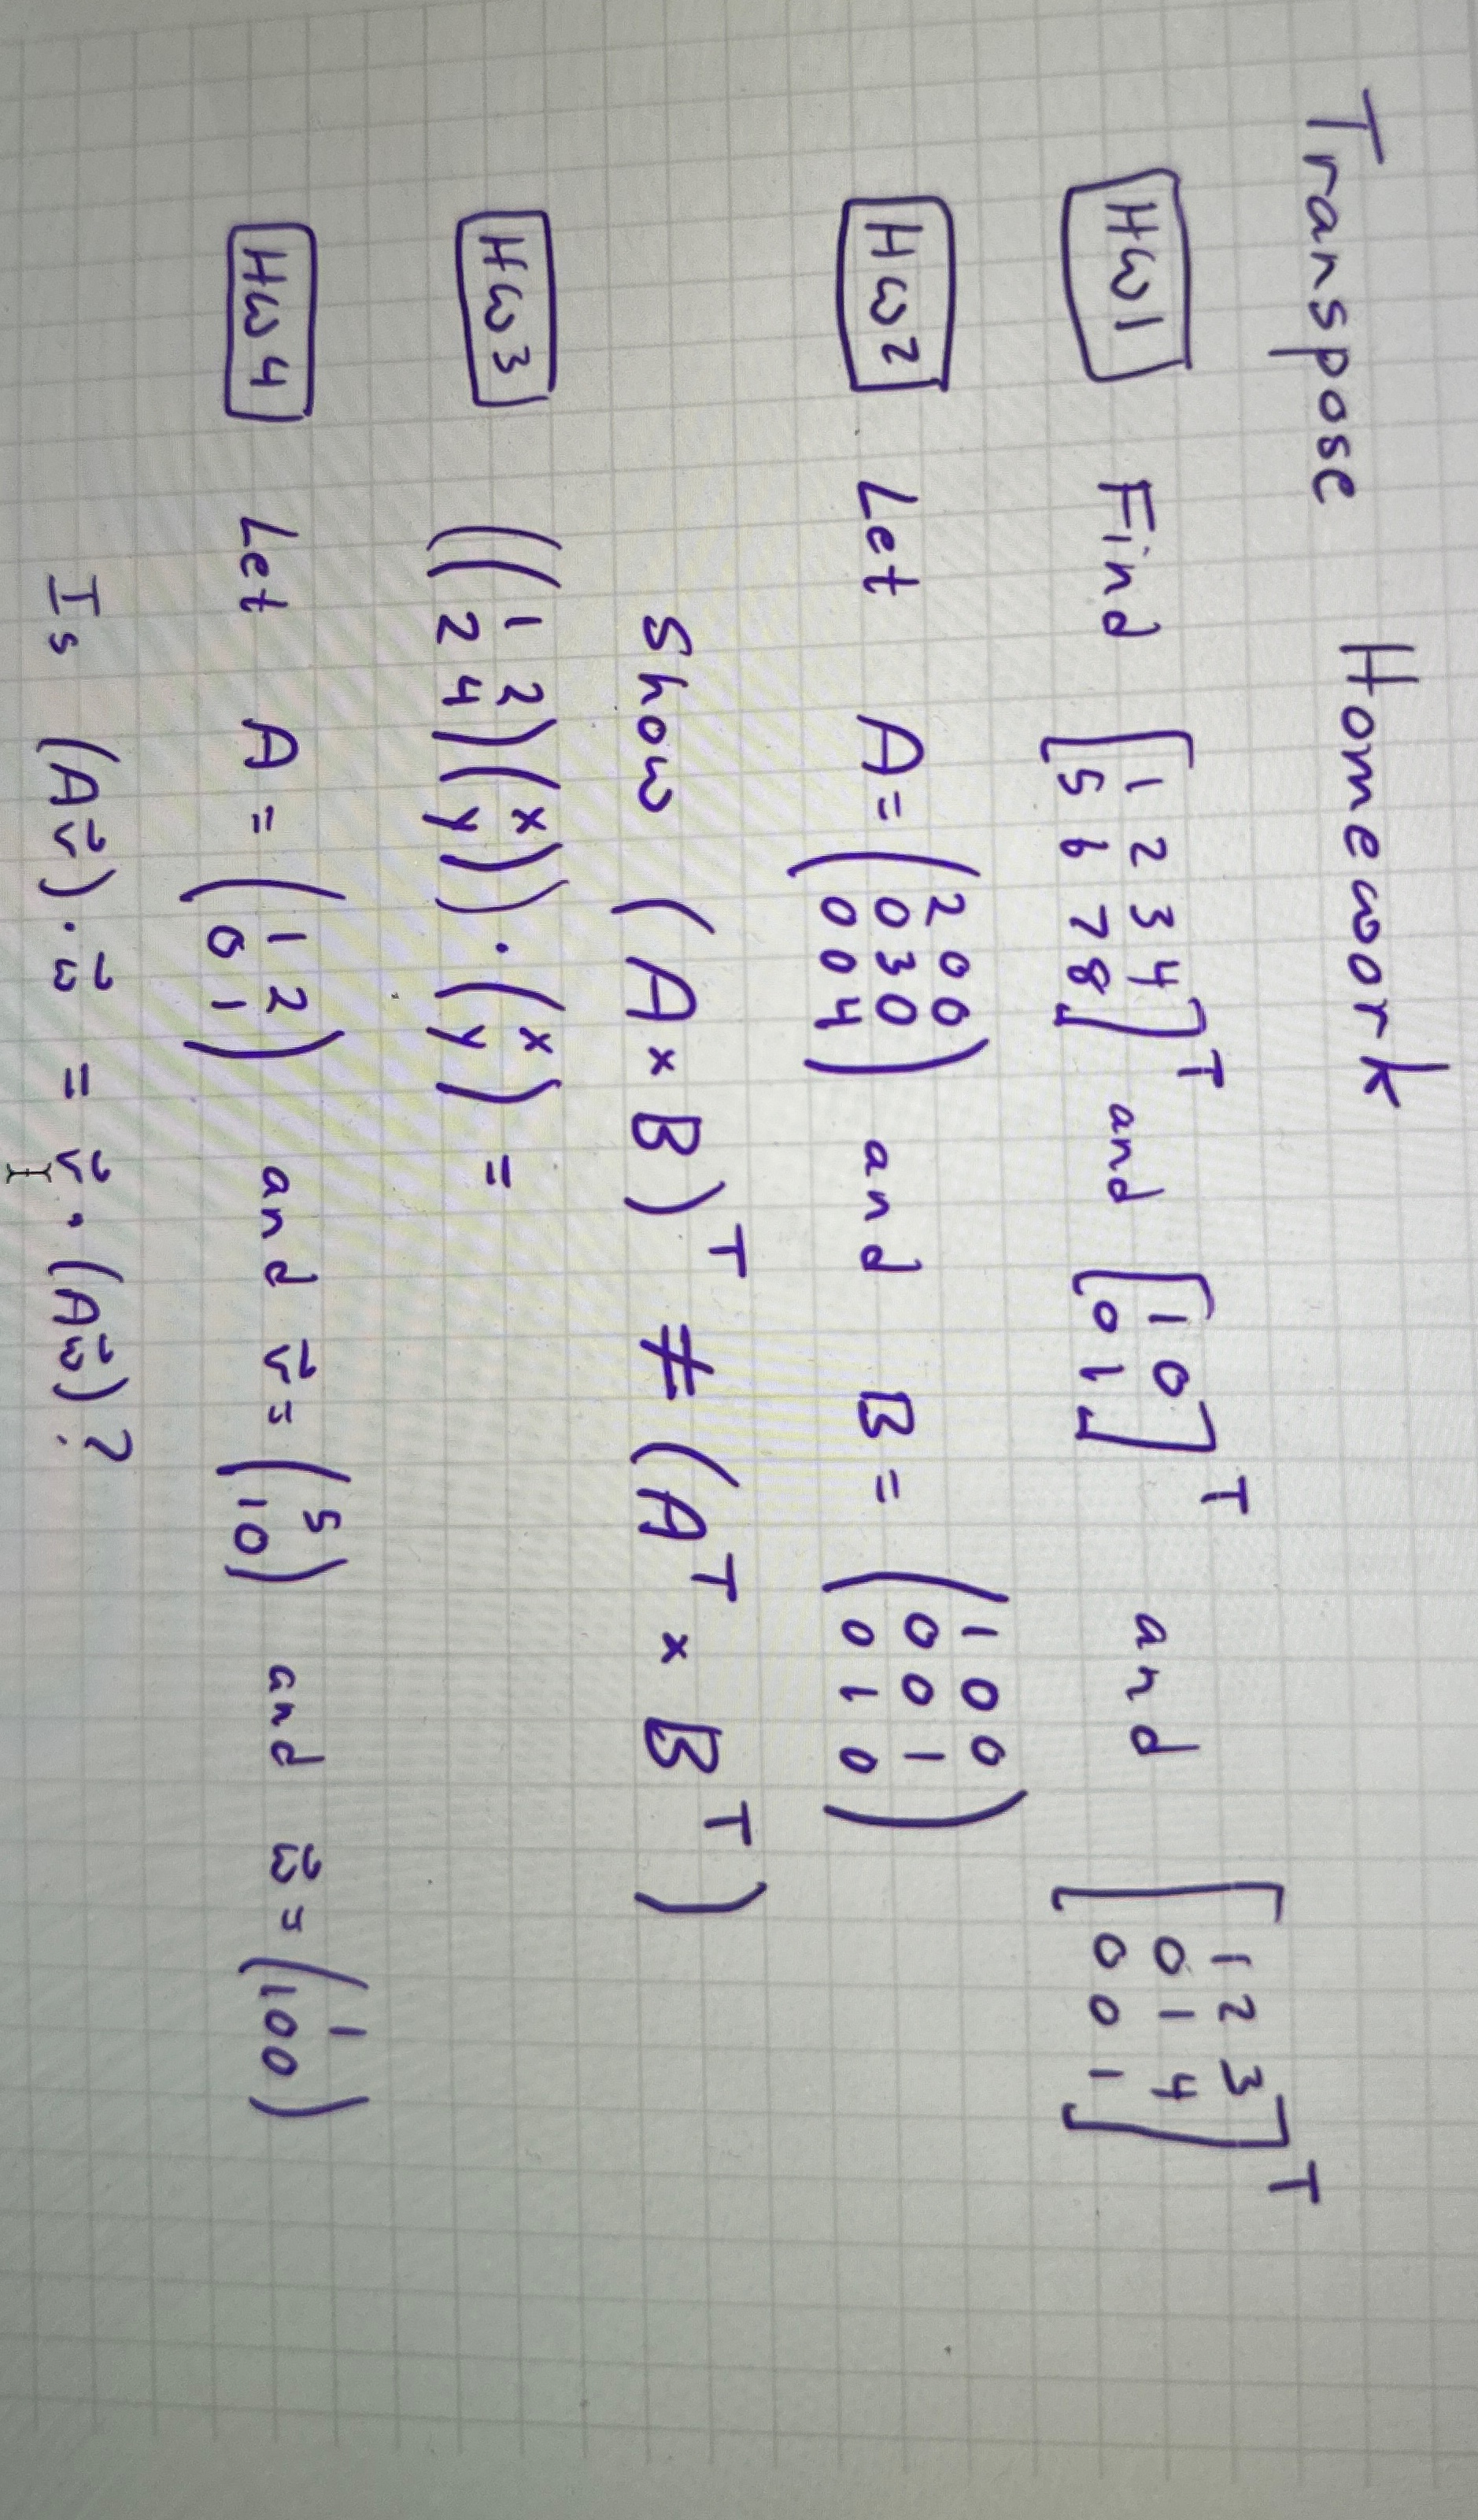 Transpose Homework
HW1 Find [1 2 3 4
5 6 7 8]ᵀ and [1 0
0 1]ᵀ and [1 2 3
0 1 4
0 0 1]ᵀ
HW2 Let A = (2 0 0
0 3 0
0 0 4) and B = (1 0 0
0 0 1
0 1 0)
Show (A × B)ᵀ ≠ (Aᵀ × Bᵀ)
HW3 ((1 2
2 4)(x
y)) · (x
y) =
HW4 Let A = (1 2
0 1) and v⃗ = (5
10) and w⃗ = (1
100)
Is (Av⃗) · w⃗ = v⃗ · (Aw⃗)?